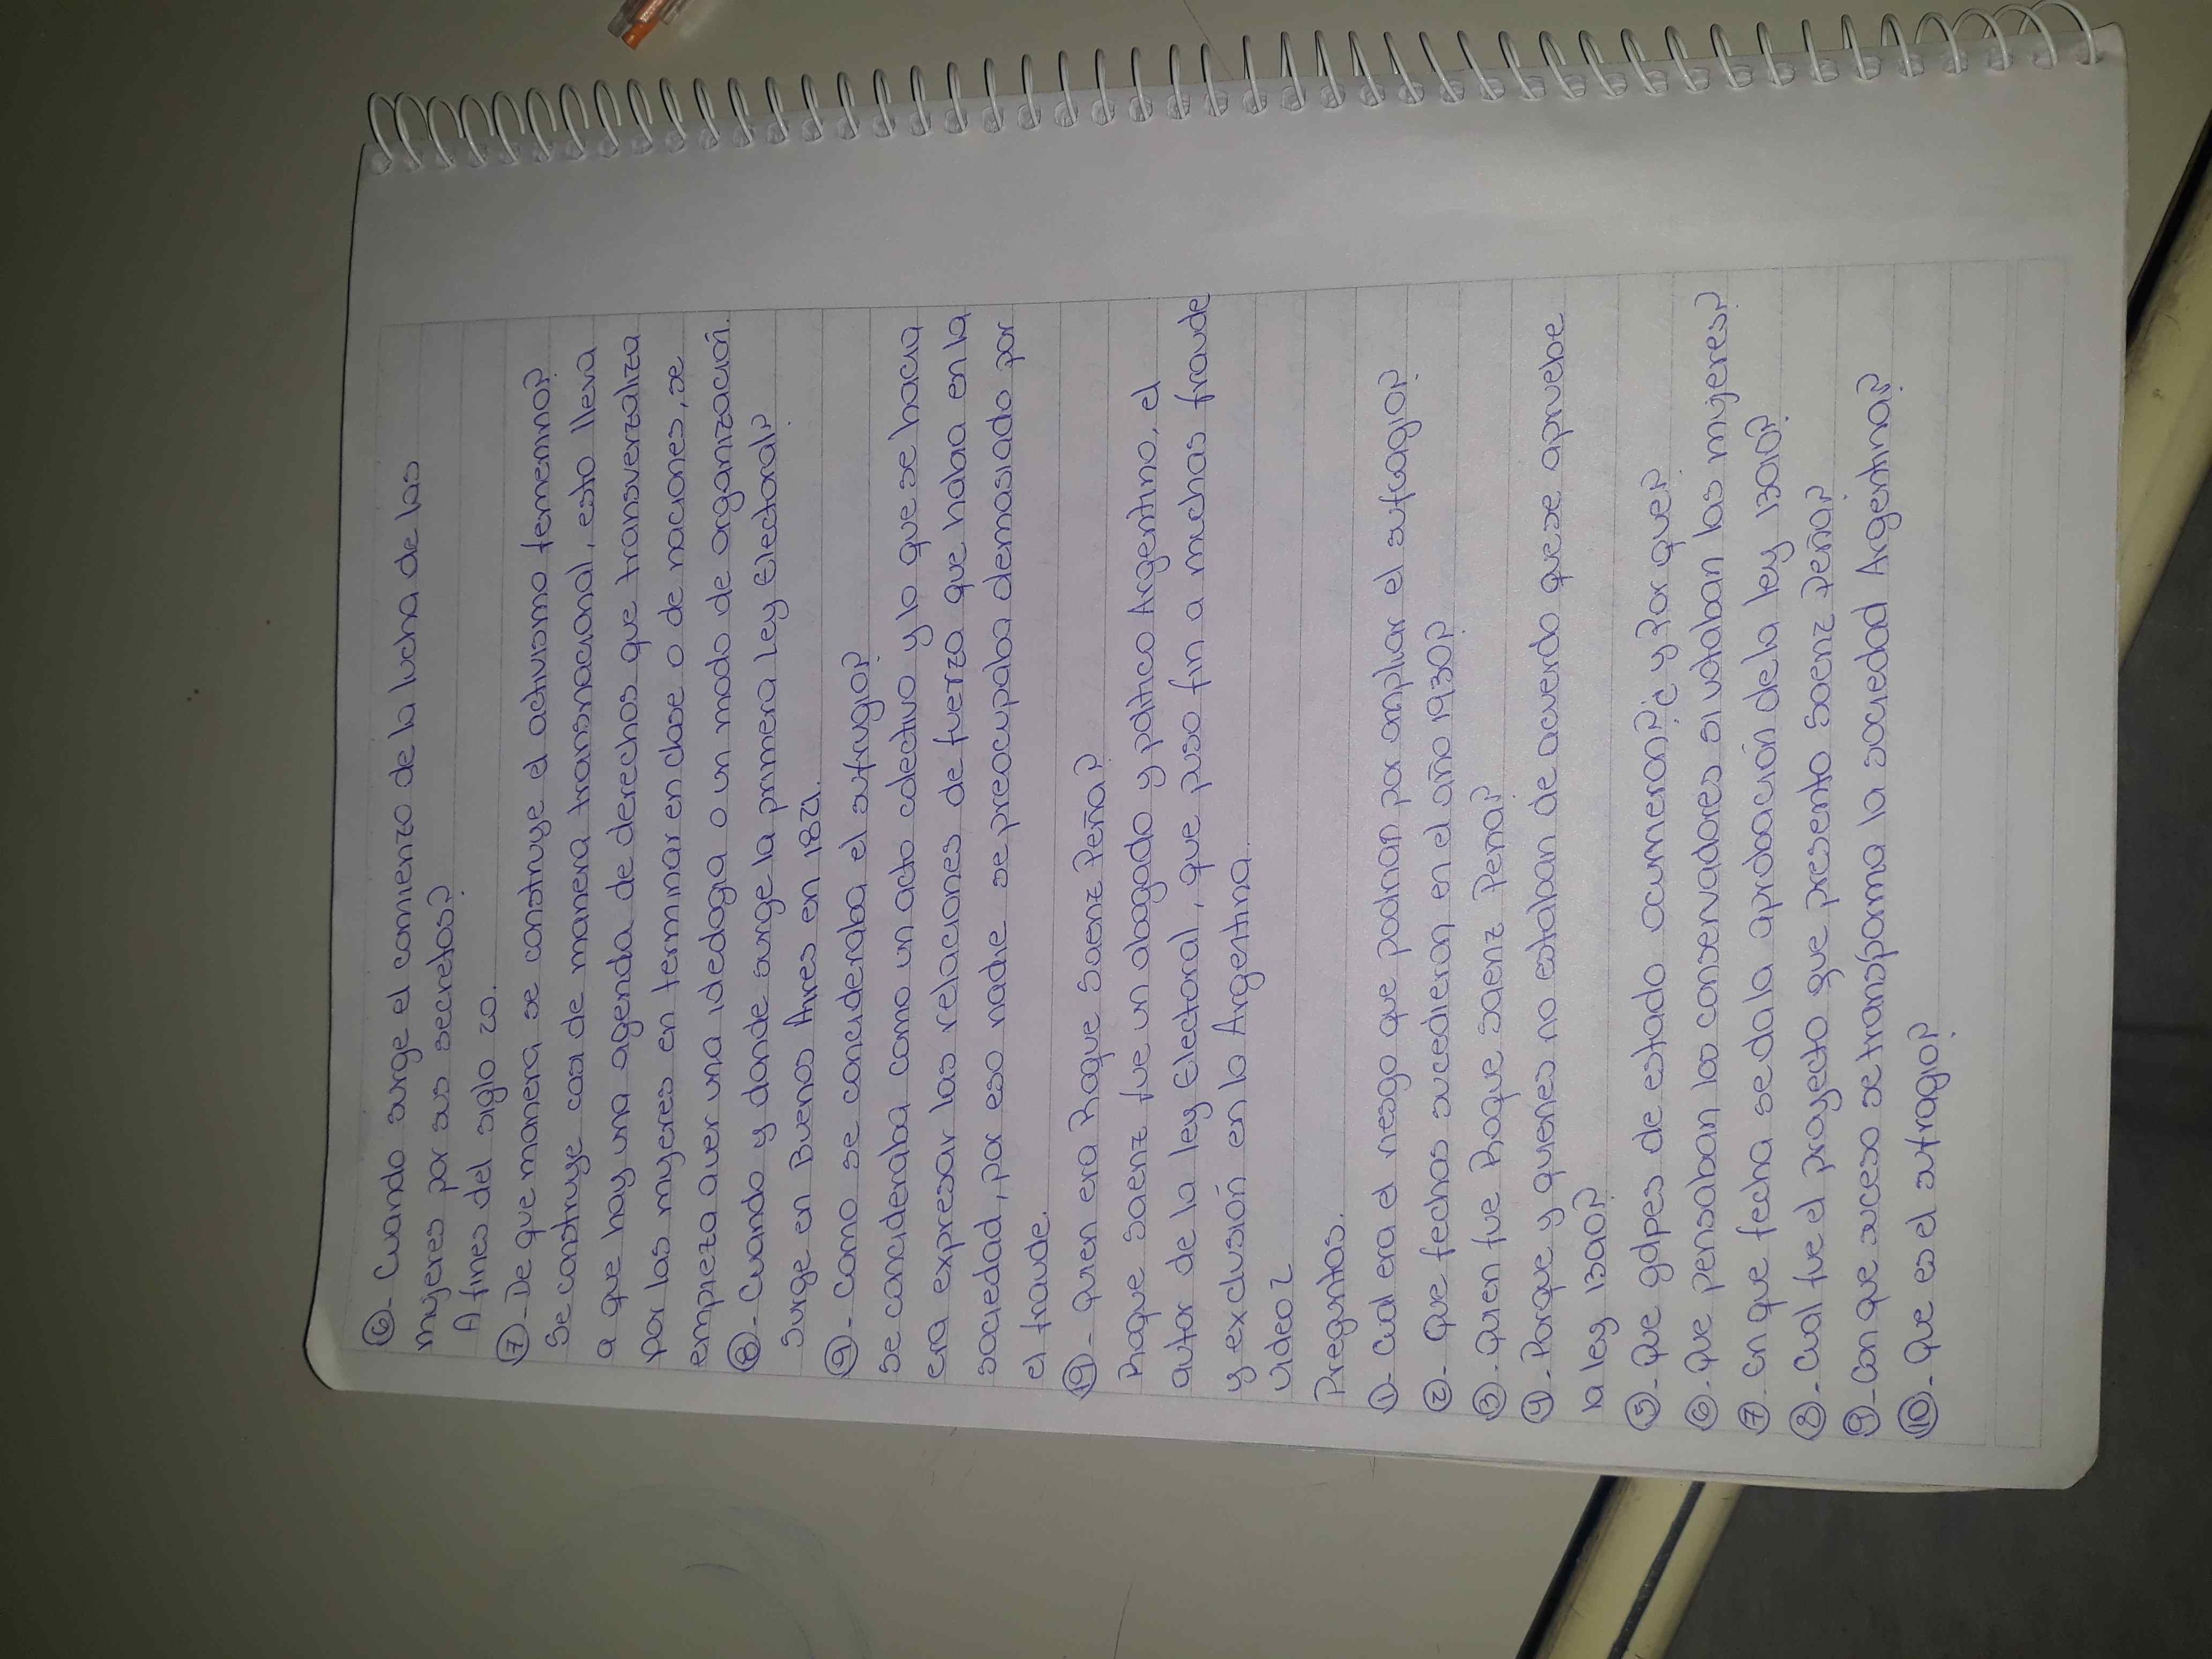 ⑥- Cuando surge el comienzo de la lucha de las
mujeres por sus secretos?
A fines del siglo 20.
⑦- De que manera se construye el activismo femenino?
Se construye casi de manera transnacional, esto lleva
a que hay una agenda de derechos que transverzaliza
por las mujeres en terminar en clase o de naciones, se
empieza aver una ideologia o un modo de organización.
⑧- Cuando y donde surge la primera Ley Electoral?
Surge en Buenos Aires en 1821.
⑨- Como se concideraba el sufrugio?
Se concideraba como un acto colectivo y lo que se hacia
era expresar las relaciones de fuerza que habia en la
sociedad, por eso nadie se preocupaba demasiado por
el fraude.
⑩- quien era Roque Saenz Peña?
Roque Saenz fue un abogado y politico Argentino, el
autor de la ley Electoral, que puso fin a muchas fraude
y exclusión en la Argentina.
video 2
Preguntas.
①- Cual era el riesgo que podrian por ampliar el sufragio?
②- Que fechas sucedieron en el año 1930?
③- Quien fue Roque Saenz Pena?
④- Porque y quienes no estaban de acuerdo que se apruebe
la ley 13010?
⑤- Que golpes de estado ocurrieron? ¿y Por que?
⑥- Que pensaban los conservadores si votaban las mujeres?
⑦- En que fecha se da la aprobación de la ley 13010?
⑧- Cual fue el proyecto que presento Saenz Peña?
⑨- Con que suceso se transforma la sociedad Argentina?
⑩- Que es el sufragio?